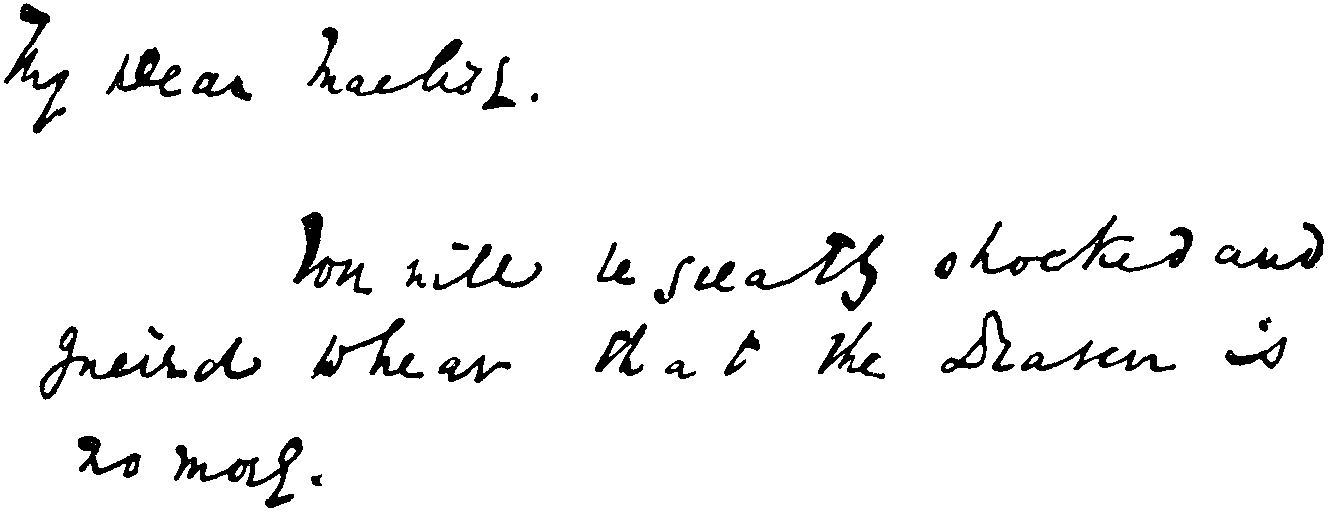 My Dear Maclise.
You will be greatly shocked and
grieved to hear that the Raven is
no more.